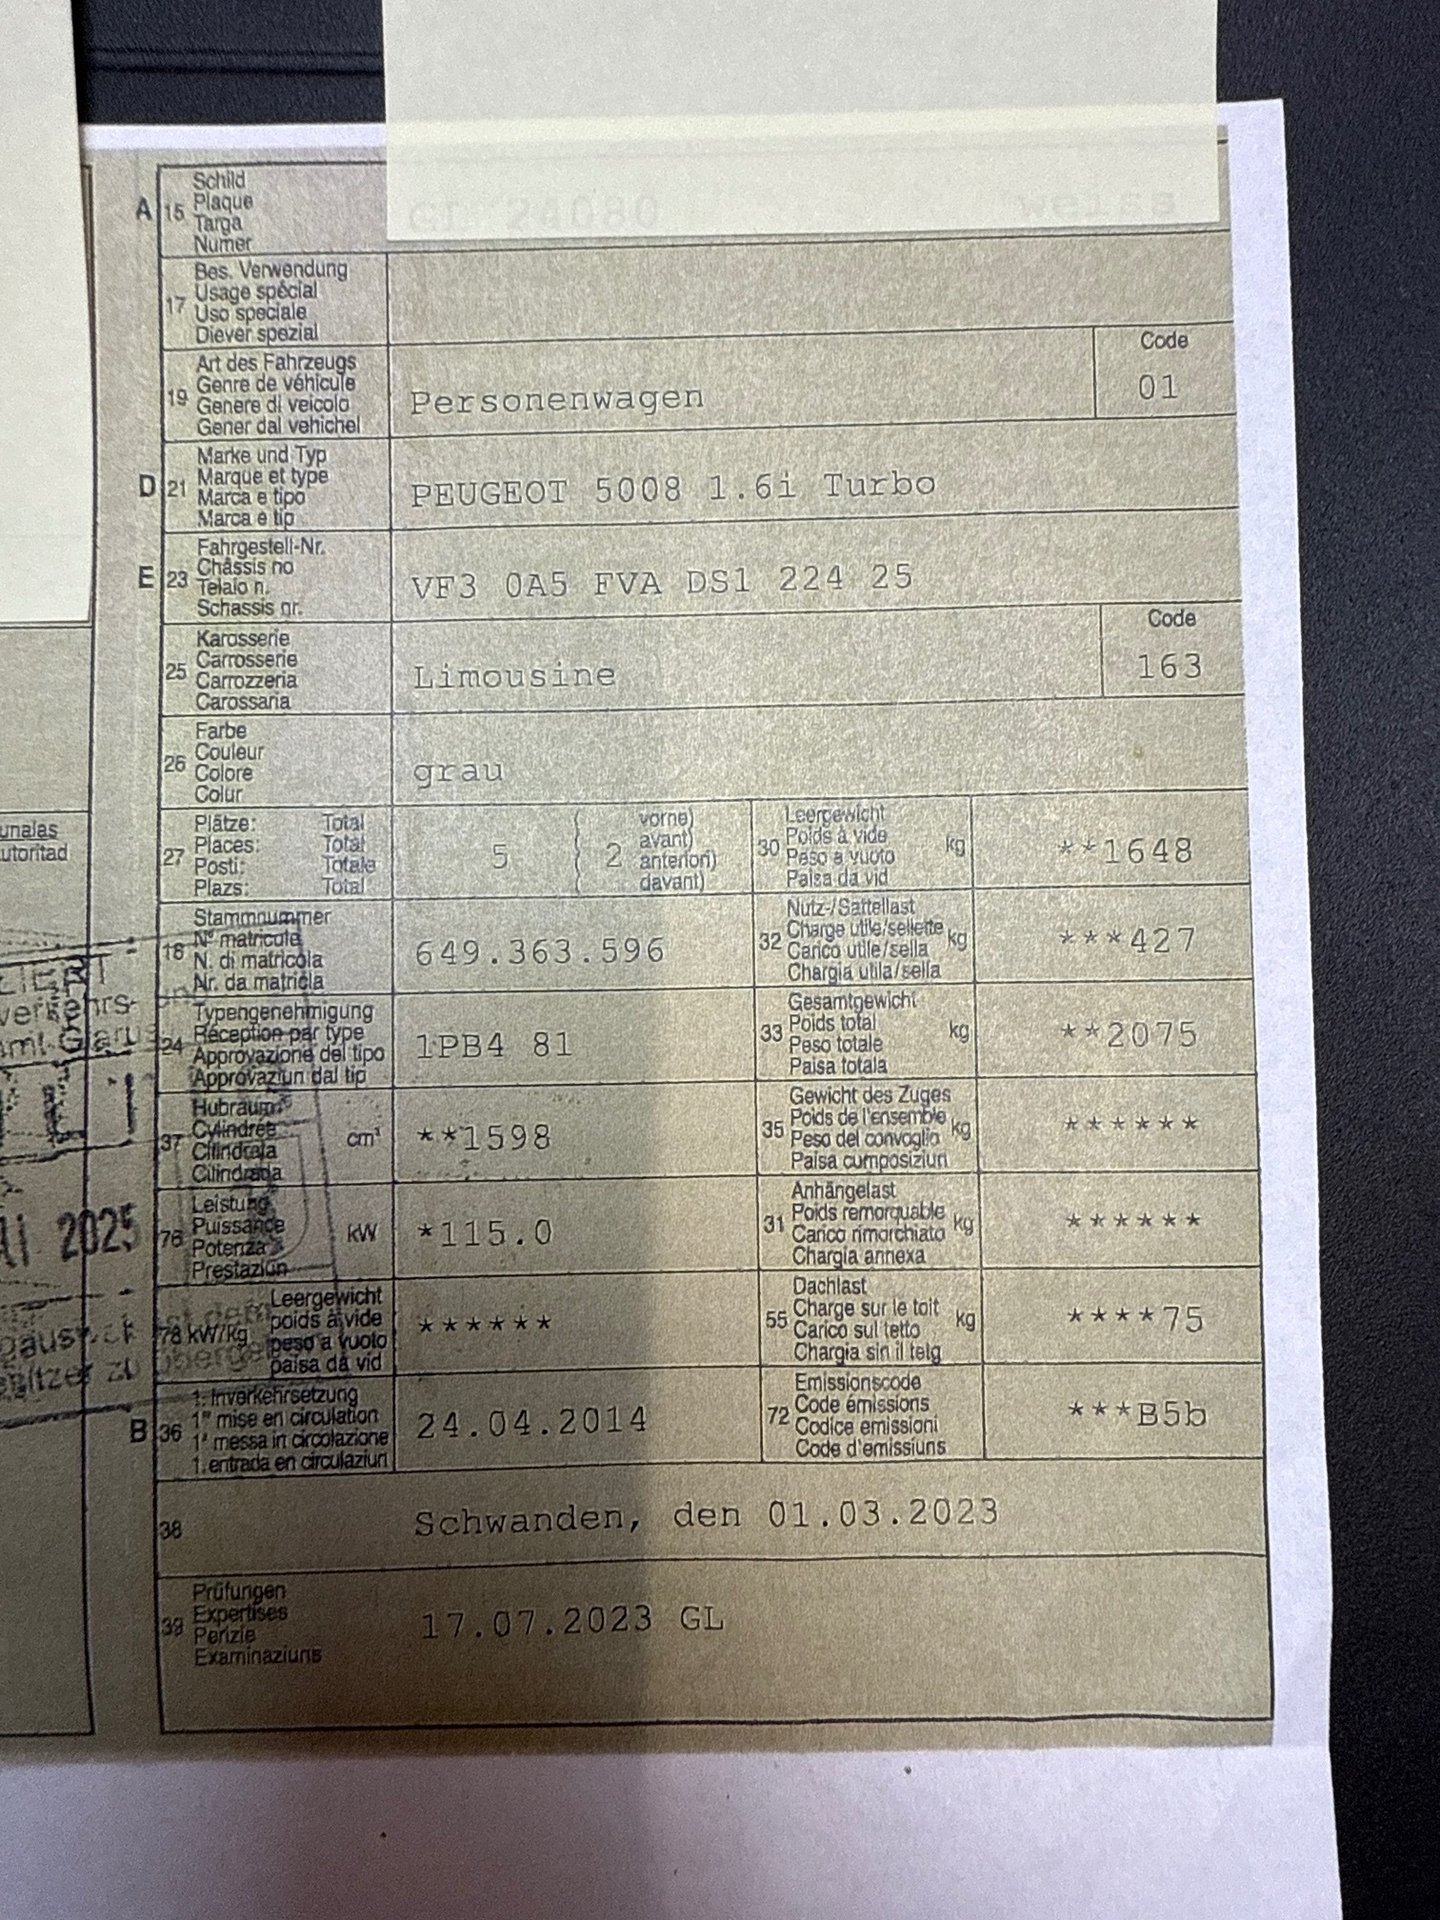 A 15 Schild
Plaque
Targa
Numer
weiss
17 Bes. Verwendung
Usage spécial
Uso speciale
Diever spezial
19 Art des Fahrzeugs
Genre de véhicule
Genere di veicolo
Gener dal vehichel
Personenwagen
Code
01
D 21 Marke und Typ
Marque et type
Marca e tipo
Marca e tip
PEUGEOT 5008 1.6i Turbo
E 23 Fahrgestell-Nr.
Châssis no
Telaio n.
Schassis nr.
VF3 0A5 FVA DS1 224 25
25 Karosserie
Carrosserie
Carrozzeria
Carossaria
Limousine
Code
163
26 Farbe
Couleur
Colore
Colur
grau
27 Plätze: Total
Places: Total
Posti: Totale
Plazs: Total
5 2
vorne)
avant)
anteriori)
davant)
30 Leergewicht
Poids à vide kg
Peso a vuoto
Paisa da vid
**1648
unalas
utoritad
18 Stammnummer
N° matricule
N. di matricola
Nr. da matricla
649.363.596
32 Nutz-/Sattellast
Charge utile/sellette kg
Carico utile/sella
Chargia utila/sella
***427
24 Typengenehmigung
Réception par type
Approvazione del tipo
Approvaziun dal tip
1PB4 81
33 Gesamtgewicht
Poids total kg
Peso totale
Paisa totala
**2075
37 Hubraum
Cylindrée
Cilindrata
Cilindrada
cm³
**1598
35 Gewicht des Zuges
Poids de l'ensemble kg
Peso del convoglio
Paisa cumposiziun
******
76 Leistung
Puissance
Potenza
Prestaziun
kW
*115.0
31 Anhängelast
Poids remorquable kg
Carico rimorchiato
Chargia annexa
******
2025
78 kW/kg
Leergewicht
poids à vide
peso a vuoto
paisa da vid
******
55 Dachlast
Charge sur le toit kg
Carico sul tetto
Chargia sin il tetg
****75
B 36 1. Inverkehrsetzung
1re mise en circulation
1a messa in circolazione
1. entrada en circulaziun
24.04.2014
72 Emissionscode
Code émissions
Codice emissioni
Code d'emissiuns
***B5b
38 Schwanden, den 01.03.2023
39 Prüfungen
Expertises
Perizie
Examinaziuns
17.07.2023 GL